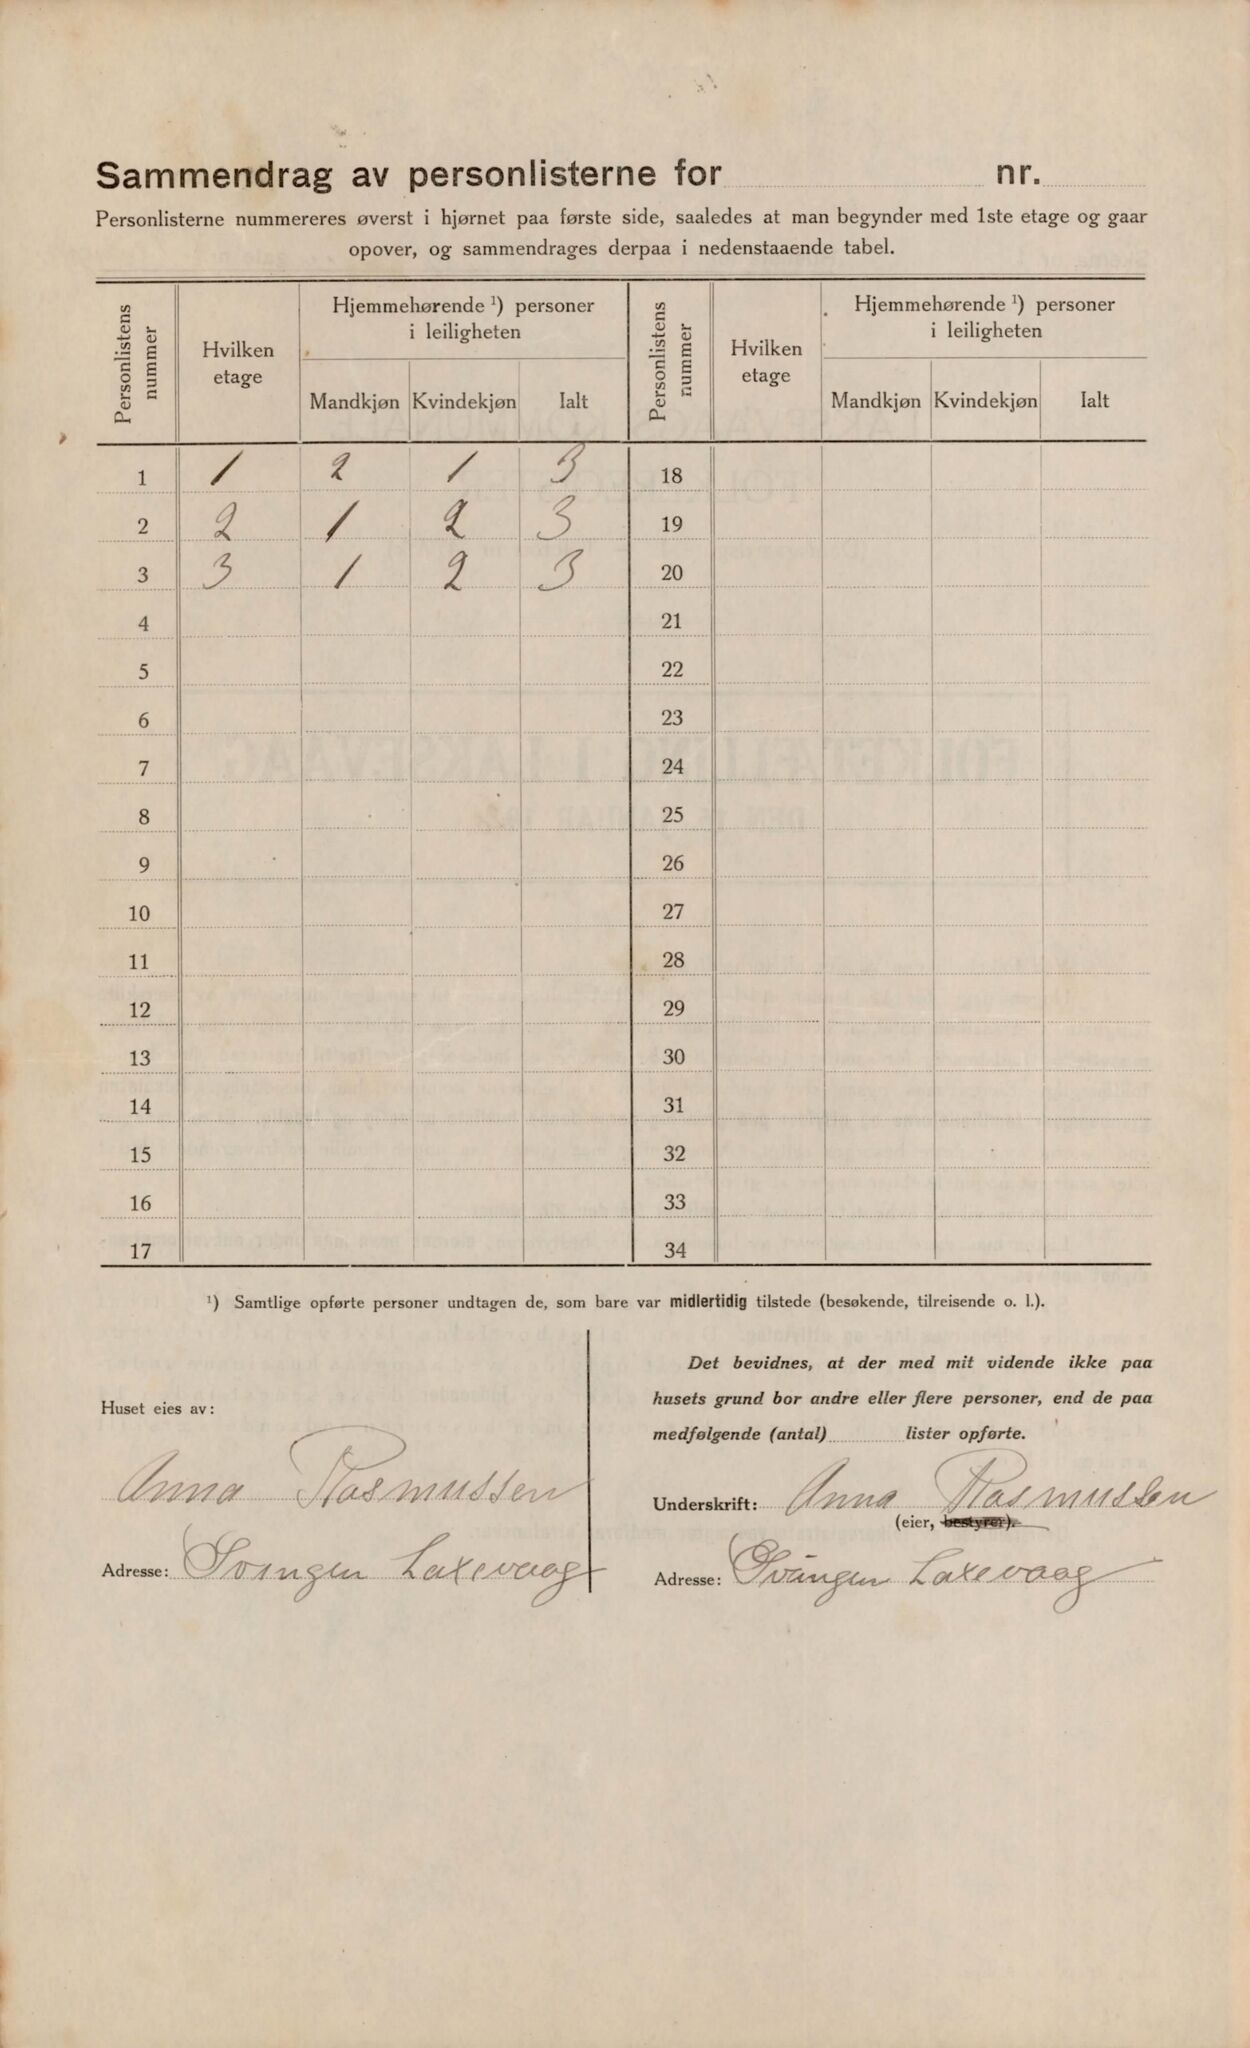 Sammendrag av personlisterne for nr.
Personlisterne nummereres øverst i hjørnet paa første side, saaledes at man begynder med 1ste etage og gaar
opover, og sammendrages derpaa i nedenstaaende tabel.
Personlistens nummer Hvilken etage Hjemmehørende ¹) personer i leiligheten Personlistens nummer Hvilken etage Hjemmehørende ¹) personer i leiligheten
Mandkjøn Kvindekjøn Ialt Mandkjøn Kvindekjøn Ialt
1 1 2 1 3 18
2 2 1 2 3 19
3 3 1 2 3 20
4 21
5 22
6 23
7 24
8 25
9 26
10 27
11 28
12 29
13 30
14 31
15 32
16 33
17 34
¹) Samtlige opførte personer undtagen de, som bare var midlertidig tilstede (besøkende, tilreisende o. l.).
Huset eies av:
Anna Rasmussen
Adresse: Svingen Laxevaag
Det bevidnes, at der med mit vidende ikke paa
husets grund bor andre eller flere personer, end de paa
medfølgende (antal) lister opførte.
Underskrift: Anna Rasmussen
(eier, bestyrer).
Adresse: Svingen Laxevaag